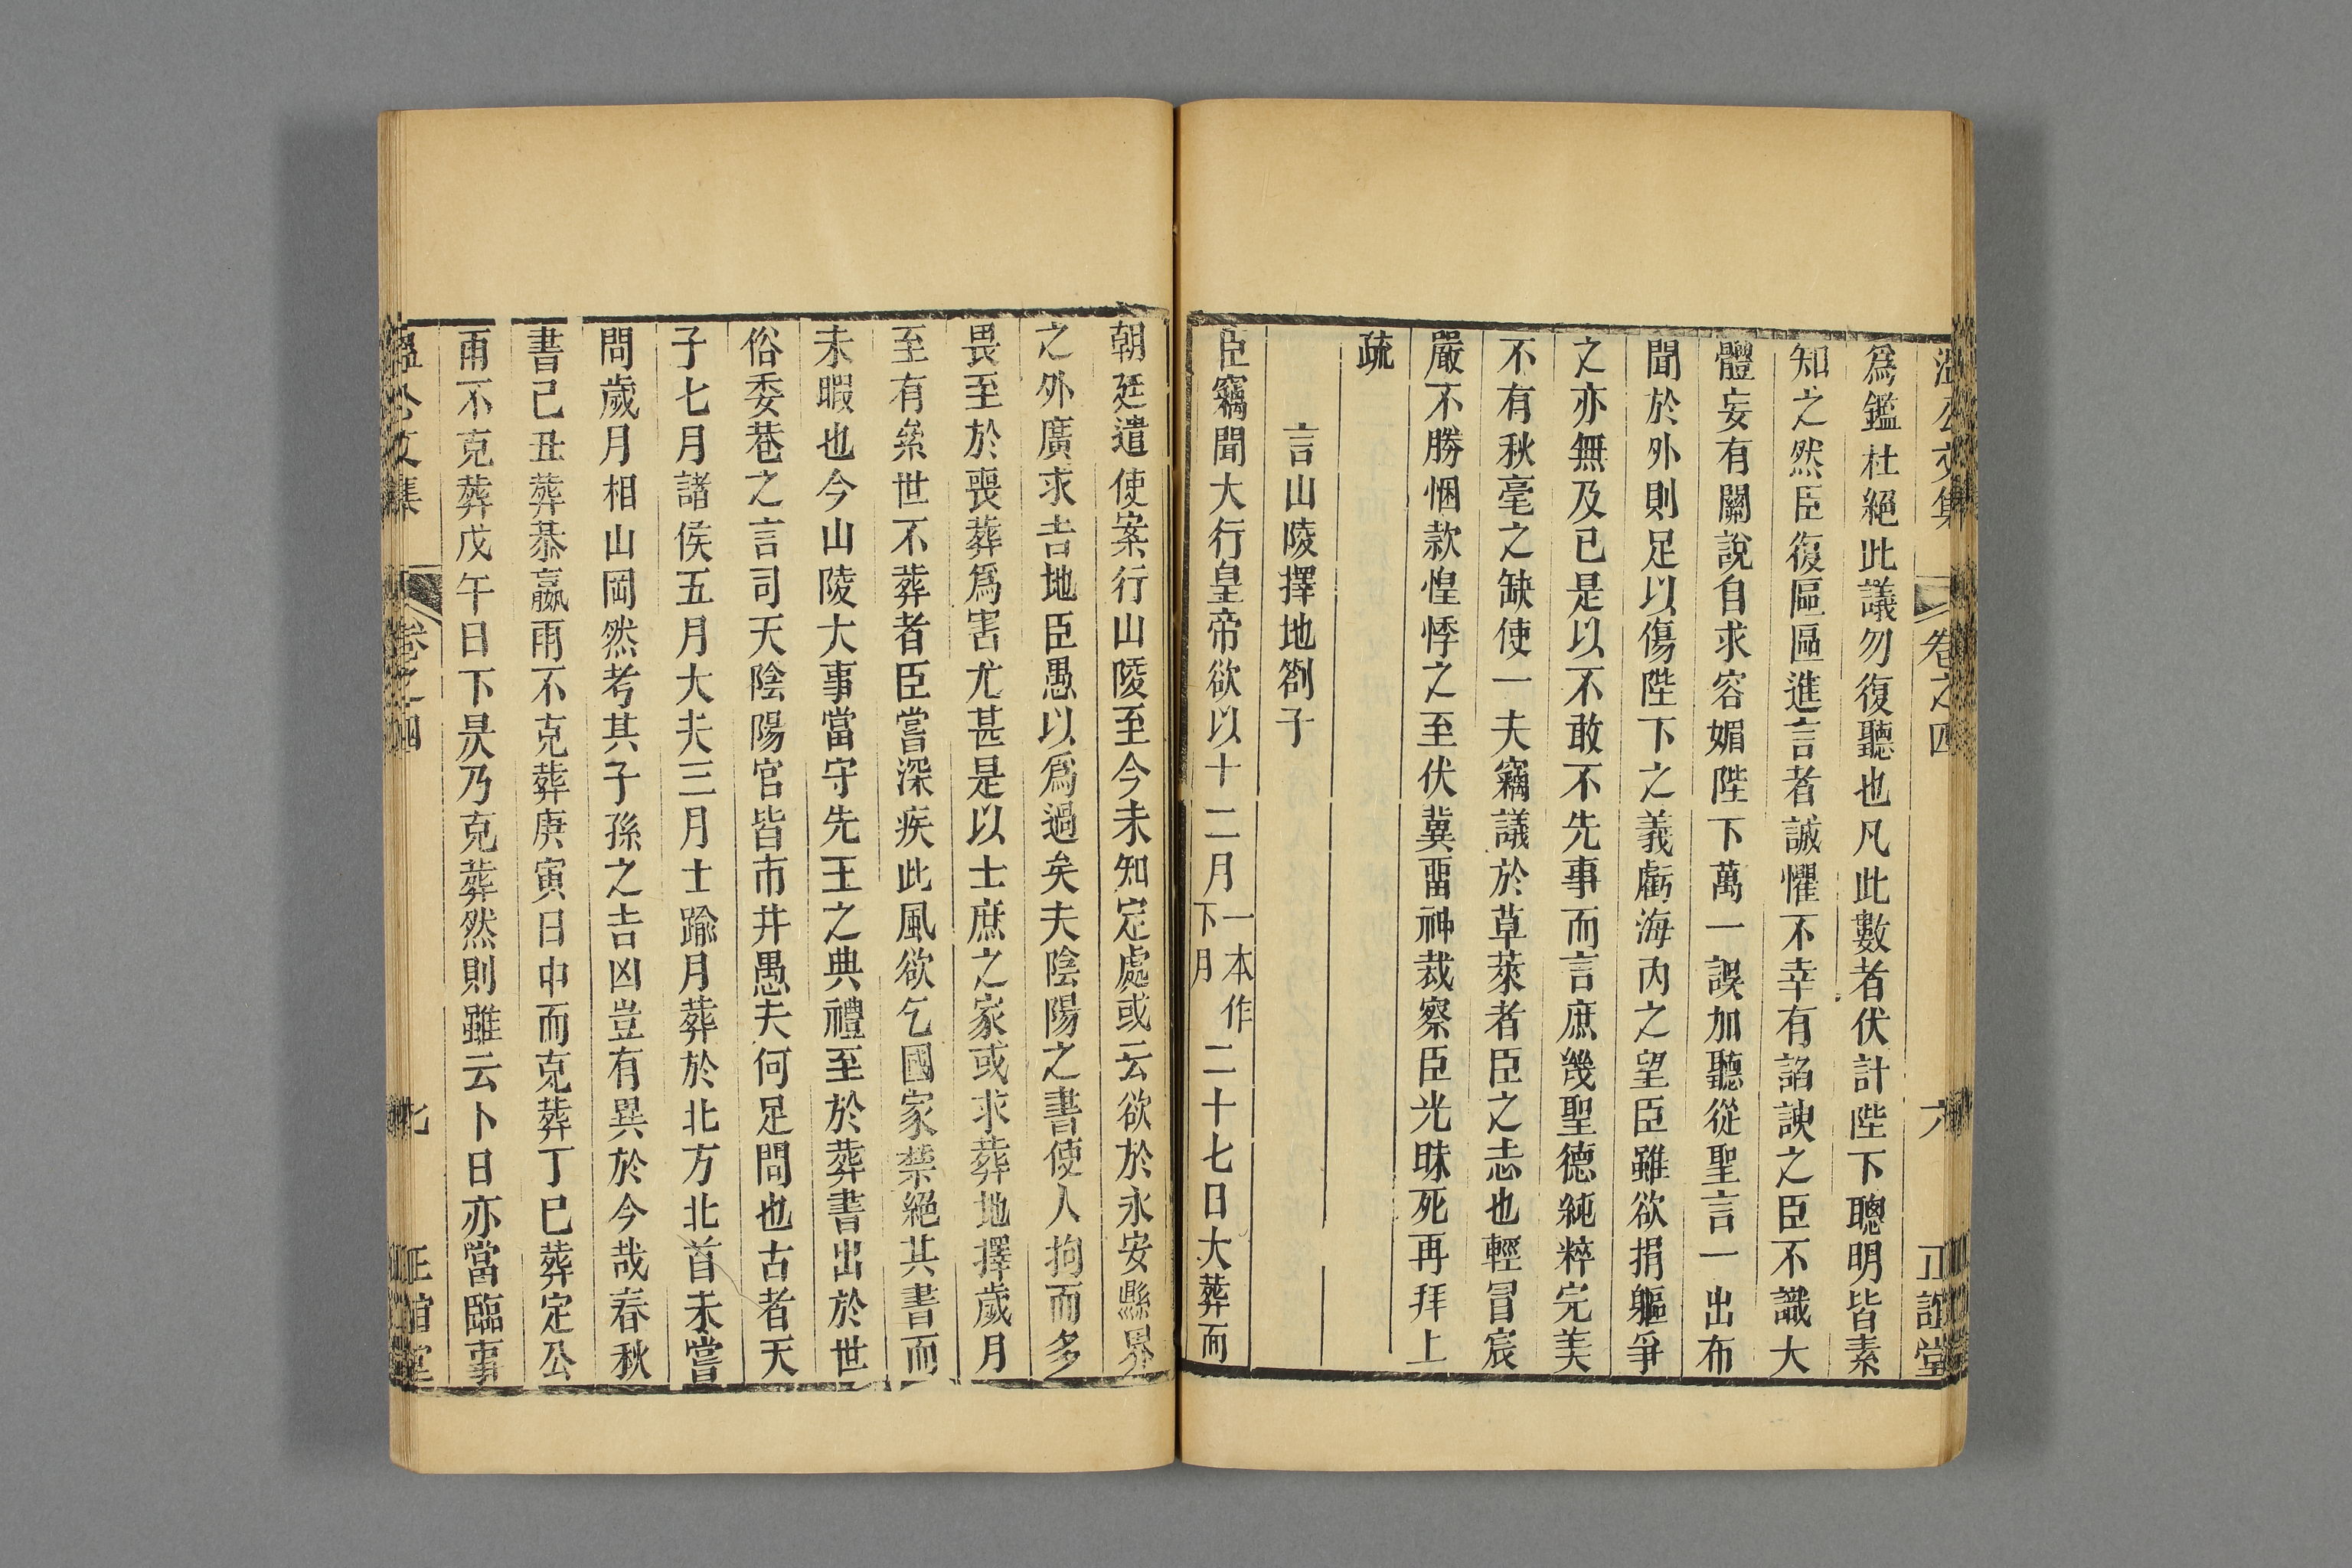 溫公文集 卷之四 六 正誼堂
爲鑑杜絕此議勿復聽也凡此數者伏計陛下聰明皆素
知之然臣復區區進言者誠懼不幸有諂諛之臣不識大
體妄有關說自求容媚陛下萬一誤加聽從聖言一出布
聞於外則足以傷陛下之義虧海內之望臣雖欲捐軀爭
之亦無及已是以不敢不先事而言庶幾聖德純粹完美
不有秋毫之缺使一夫竊議於草萊者臣之志也輕冒宸
嚴不勝悃款惶悸之至伏冀畱神裁察臣光昧死再拜上
疏
言山陵擇地劄子
臣竊聞大行皇帝欲以十二月一本作下月二十七日大葬而
朝廷遣使案行山陵至今未知定處或云欲於永安縣界
之外廣求吉地臣愚以爲過矣夫陰陽之書使人拘而多
畏至於喪葬爲害尤甚是以士庶之家或求葬地擇歲月
至有絫世不葬者臣嘗深疾此風欲乞國家禁絕其書而
未暇也今山陵大事當守先王之典禮至於葬書出於世
俗委巷之言司天陰陽官皆市井愚夫何足問也古者天
子七月諸侯五月大夫三月士踰月葬於北方北首未嘗
問歲月相山岡然考其子孫之吉凶豈有異於今哉春秋
書己丑葬恭嬴雨不克葬庚寅日中而克葬丁巳葬定公
雨不克葬戊午日下昃乃克葬然則雖云卜日亦當臨事
溫公文集 卷之四 七 正誼堂